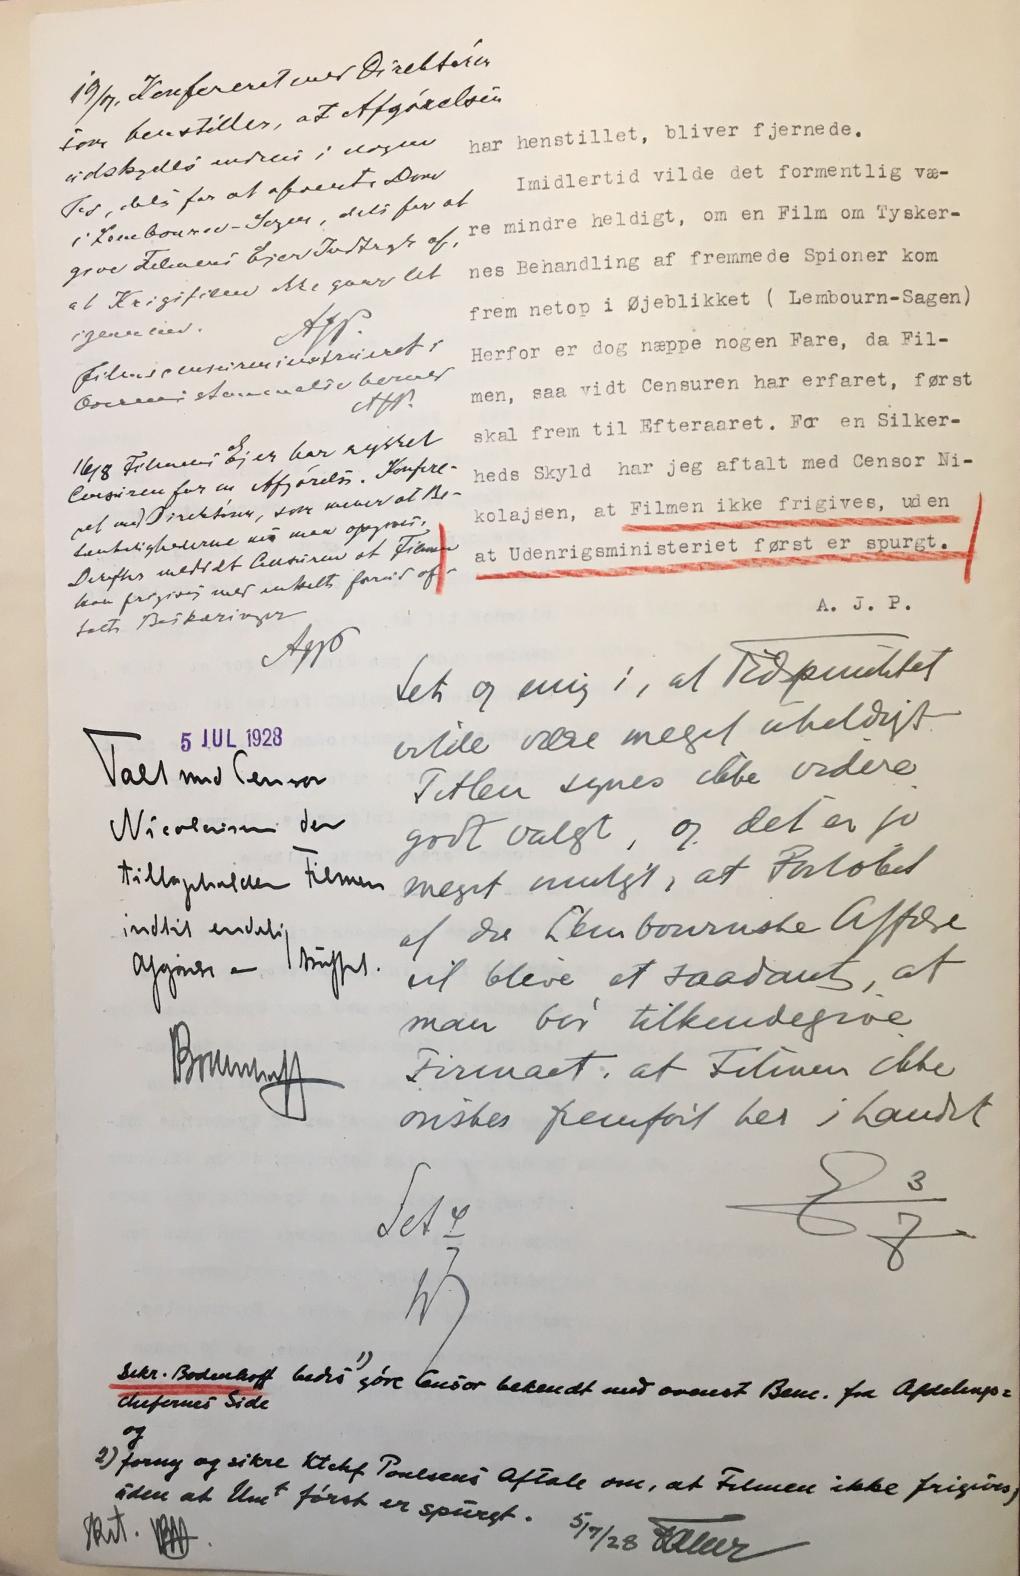 19/7. Konfereret med Direktøren
som henstiller, at Afgørelsen
udskydes endnu i nogen
Tid, dels for at afvente Dom
i Lembourn-Sagen, dels for at
give Filmens Ejer Indtryk af,
at Krigsfilm ikke gaar let
igennem.
App.
Filmscensuren instrueret i
Overensstemmelse hermed
App.
16/8 Filmens Ejer har rykket
Censuren for en Afgørelse. Konfe-
ret med Direktøren, som mener at Be-
tænkelighederne nu maa opgives.
Derefter meddelt Censuren at Filmen
kan frigives med enkelte forud af-
talte Beskæringer
App
har henstillet, bliver fjernede.
Imidlertid vilde det formentlig væ-
re mindre heldigt, om en Film om Tysker-
nes Behandling af fremmede Spioner kom
frem netop i Øjeblikket ( Lembourn-Sagen)
Herfor er dog næppe nogen Fare, da Fil-
men, saa vidt Censuren har erfaret, først
skal frem til Efteraaret. For en Sikker-
heds Skyld har jeg aftalt med Censor Ni-
kolajsen, at Filmen ikke frigives, uden
at Udenrigsministeriet først er spurgt.
A. J. P.
Set og enig i, at Tidspunktet
vilde være meget uheldigt
Titlen synes ikke videre
godt valgt, og det er jo
meget muligt, at Forløbet
af den Lembournske Affære
vil blive et saadant, at
man bør tilkendegive
Firmaet, at Filmen ikke
ønskes fremført her i Landet
3
7
5 JUL 1928
Talt med Censor
Nicolaisen der
tilbageholder Filmen
indtil endelig
Afgørelse er truffet.
Bodenhoff
Set 4
7
Sekr. Bodenhoff bedes 1) gøre Censor bekendt med ovenst Bem. fra Afdelings=
chefernes Side
og
2) forny og sikre Ktchf Poulsens Aftale om, at Filmen ikke frigives,
uden at Umt først er spurgt.
5/7/28